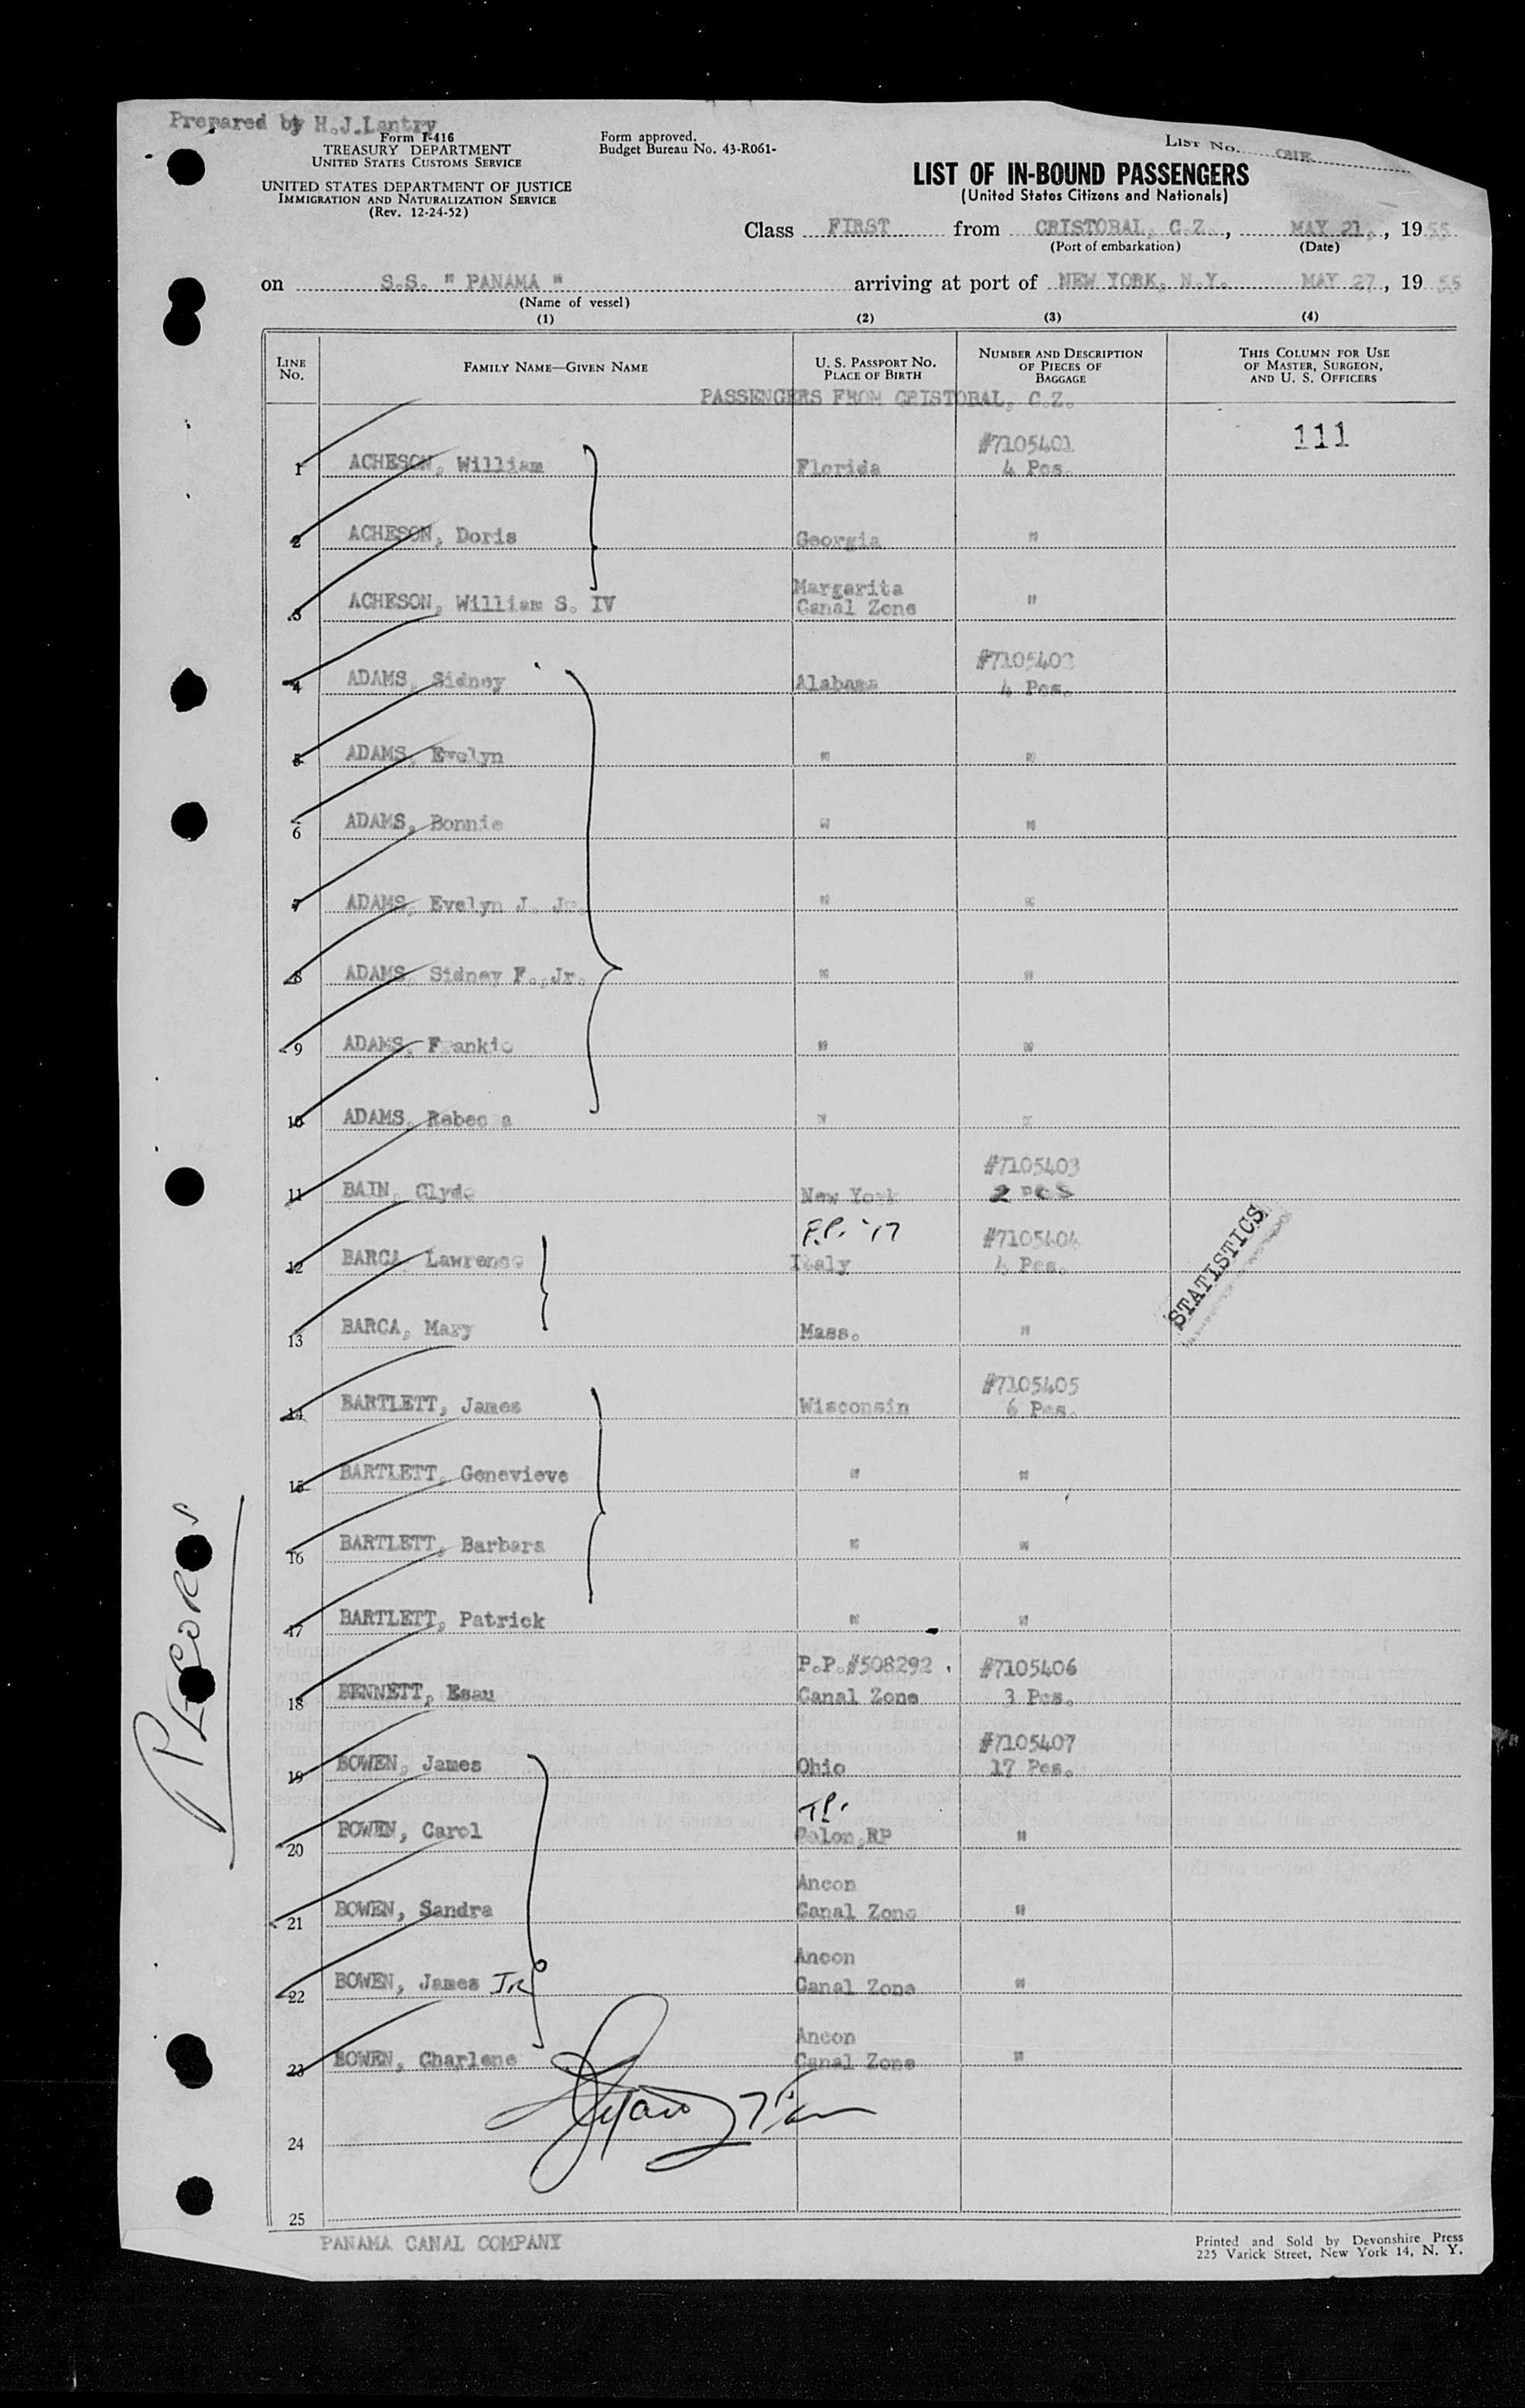 Prepared by H.J.Lantry
Form I-416
TREASURY DEPARTMENT
UNITED STATES CUSTOMS SERVICE
UNITED STATES DEPARTMENT OF JUSTICE
IMMIGRATION AND NATURALIZATION SERVICE
(Rev. 12-24-52)
Form approved.
Budget Bureau No. 43-R061-
LIST NO. ONE
LIST OF IN-BOUND PASSENGERS
(United States Citizens and Nationals)
Class FIRST from CRISTOBAL, C.Z., MAY 21, , 1955
(Port of embarkation) (Date)
on S.S. " PANAMA " arriving at port of NEW YORK, N.Y. MAY 27, 1955
(Name of vessel)
(1) (2) (3) (4)
LINE No. FAMILY NAME—GIVEN NAME U. S. PASSPORT NO. PLACE OF BIRTH NUMBER AND DESCRIPTION OF PIECES OF BAGGAGE THIS COLUMN FOR USE OF MASTER, SURGEON, AND U. S. OFFICERS
PASSENGERS FROM CRISTOBAL, C.Z.
#7105401 111
1 ACHESON, William Florida 4 Pcs.
2 ACHESON, Doris Georgia "
Margarita
3 ACHESON, William S. IV Canal Zone "
#7105402
4 ADAMS, Sidney Alabama 4 Pcs.
5 ADAMS, Evelyn " "
6 ADAMS, Bonnie " "
7 ADAMS, Evelyn J. Jr. " "
8 ADAMS, Sidney F.,Jr. " "
9 ADAMS, Frankie " "
10 ADAMS, Rebecca " "
#7105403
11 BAIN, Clyde New York 2 pcs
F.P. '17 #7105404
12 BARCA, Lawrence Italy 4 Pcs.
13 BARCA, Mary Mass. "
STATISTICS
#7105405
14 BARTLETT, James Wisconsin 6 Pcs.
15 BARTLETT, Genevieve " "
16 BARTLETT, Barbara " "
17 BARTLETT, Patrick " "
P.P.#508292 #7105406
18 BENNETT, Esau Canal Zone 3 Pcs.
#7105407
19 BOWEN, James Ohio 17 Pcs.
T.P.
20 BOWEN, Carol Colon,RP "
Ancon
21 BOWEN, Sandra Canal Zone "
Ancon
22 BOWEN, James JR Canal Zone "
Ancon
23 BOWEN, Charlene Canal Zone "
24
25
PANAMA CANAL COMPANY
Printed and Sold by Devonshire Press
225 Varick Street, New York 14, N. Y.